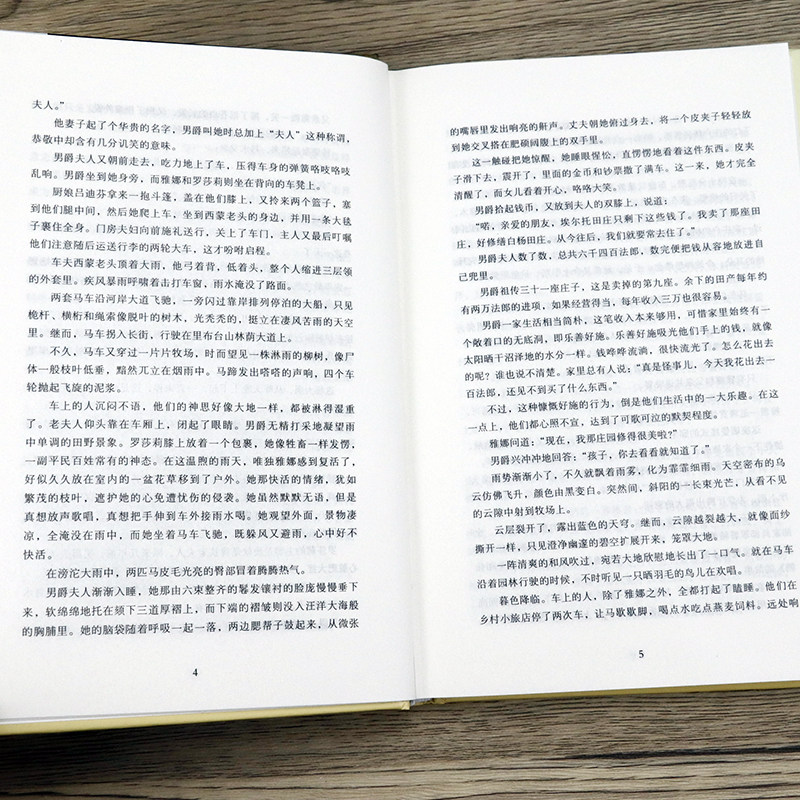 夫人。”
他妻子起了个华贵的名字，男爵叫她时总加上“夫人”这种称谓，
恭敬中却含有几分讥笑的意味。
男爵夫人又朝前走去，吃力地上了车，压得车身的弹簧咯吱咯吱
乱响。男爵坐到她身旁，而雅娜和罗莎莉则坐在背向的车凳上。
厨娘吕迪芬拿来一抱斗篷，盖在他们膝上，又拎来两个篮子，塞
到他们腿中间，然后她爬上车，坐到西蒙老头的身边，并用一条大毯
子裹住全身。门房夫妇向前施礼送行，关上了车门，主人又最后叮嘱
他们注意随后运送行李的两轮大车，这才吩咐启程。
车夫西蒙老头顶着大雨，他弓着背，低着头，整个人缩进三层领
的外套里。疾风暴雨呼啸着击打车窗，雨水淹没了路面。
两套马车沿河岸大道飞驰，一旁闪过靠岸排列停泊的大船，只见
桅杆、横桁和绳索像脱叶的树木，光秃秃的，挺立在凄风苦雨的天空
里。继而，马车拐入长街，行驶在里布台山林荫大道上。
不久，马车又穿过一片片牧场，时而望见一株淋雨的柳树，像尸
体一般枝叶低垂，黯然兀立在烟雨中。马蹄发出嗒嗒的声响，四个车
轮抛起飞旋的泥浆。
车上的人沉闷不语，他们的神思好像大地一样，都被淋得湿重
了。老夫人仰头靠在车厢上，闭起了眼睛。男爵无精打采地凝望雨
中单调的田野景象。罗莎莉膝上放着一个包裹，她像牲畜一样发愣，
一副平民百姓常有的神态。在这温煦的雨天，唯独雅娜感到复活了，
好似久久放在室内的一盆花草移到了户外。她那快活的情绪，犹如
繁茂的枝叶，遮护她的心免遭忧伤的侵袭。她虽然默默无语，但是
真想放声歌唱，真想把手伸到车外接雨水喝。她观望外面，景物凄
凉，全淹没在雨中，而她坐着马车飞驰，既躲风又避雨，心中好不
快活。
在滂沱大雨中，两匹马皮毛光亮的臀部冒着腾腾热气。
男爵夫人渐渐入睡，她那由六束整齐的鬈发镶衬的脸庞慢慢垂下
来，软绵绵地托在颏下三道厚褶上，而下端的褶皱则没入汪洋大海般
的胸脯里。她的脑袋随着呼吸一起一落，两边腮帮子鼓起来，从微张
4
的嘴唇里发出响亮的鼾声。丈夫朝她俯过身去，将一个皮夹子轻轻放
到她交叉搭在肥硕阔腹上的双手里。
这一触碰把她惊醒，她睡眼惺忪，直愣愣地看着这件东西。皮夹
子滑下去，震开了，里面的金币和钞票撒了满车。这一来，她才完全
清醒了，而女儿看着开心，咯咯大笑。
男爵拾起钱币，又放到夫人的双膝上，说道：
“喏，亲爱的朋友，埃尔托田庄只剩下这些钱了。我卖了那座田
庄，好修缮白杨田庄。从今往后，我们就要常去住了。”
男爵夫人数了数，总共六千四百法郎，数完便把钱从容地放进自
己兜里。
男爵祖传三十一座庄子，这是卖掉的第九座。余下的田产每年约
有两万法郎的进项，如果经营得当，每年收入三万也很容易。
男爵一家生活相当简朴，这笔收入本来够用，可惜家里始终有一
个敞着口的无底洞，即乐善好施。乐善好施吸光他们手上的钱，就像
太阳晒干沼泽地的水分一样。钱哗哗流淌，很快流光了。怎么花出去
的呢？谁也说不清楚。家里总有人说：“真是怪事儿，今天我花出去一
百法郎，还见不到买了什么东西。”
不过，这种慷慨好施的行为，倒是他们生活中的一大乐趣。在这
一点上，他们都心照不宣，达到了可歌可泣的默契程度。
雅娜问道：“现在，我那庄园修得很美啦？”
男爵兴冲冲地回答：“孩子，你去看看就知道了。”
雨势渐渐小了，不久就飘着雨雾，化为霏霏细雨。天空密布的乌
云仿佛飞升，颜色由黑变白。突然间，斜阳的一长束光芒，从看不见
的云隙中射到牧场上。
云层裂开了，露出蓝色的天穹。继而，云隙越裂越大，就像面纱
撕开一样，只见澄净幽邃的碧空扩展开来，笼罩大地。
一阵清爽的和风吹过，宛若大地欣慰地长出了一口气。就在马车
沿着园林行驶的时候，不时听见一只晒羽毛的鸟儿在欢唱。
暮色降临。车上的人，除了雅娜之外，全都打起了瞌睡。他们在
乡村小旅店停了两次车，让马歇歇脚，喝点水吃点燕麦饲料。远处响
5